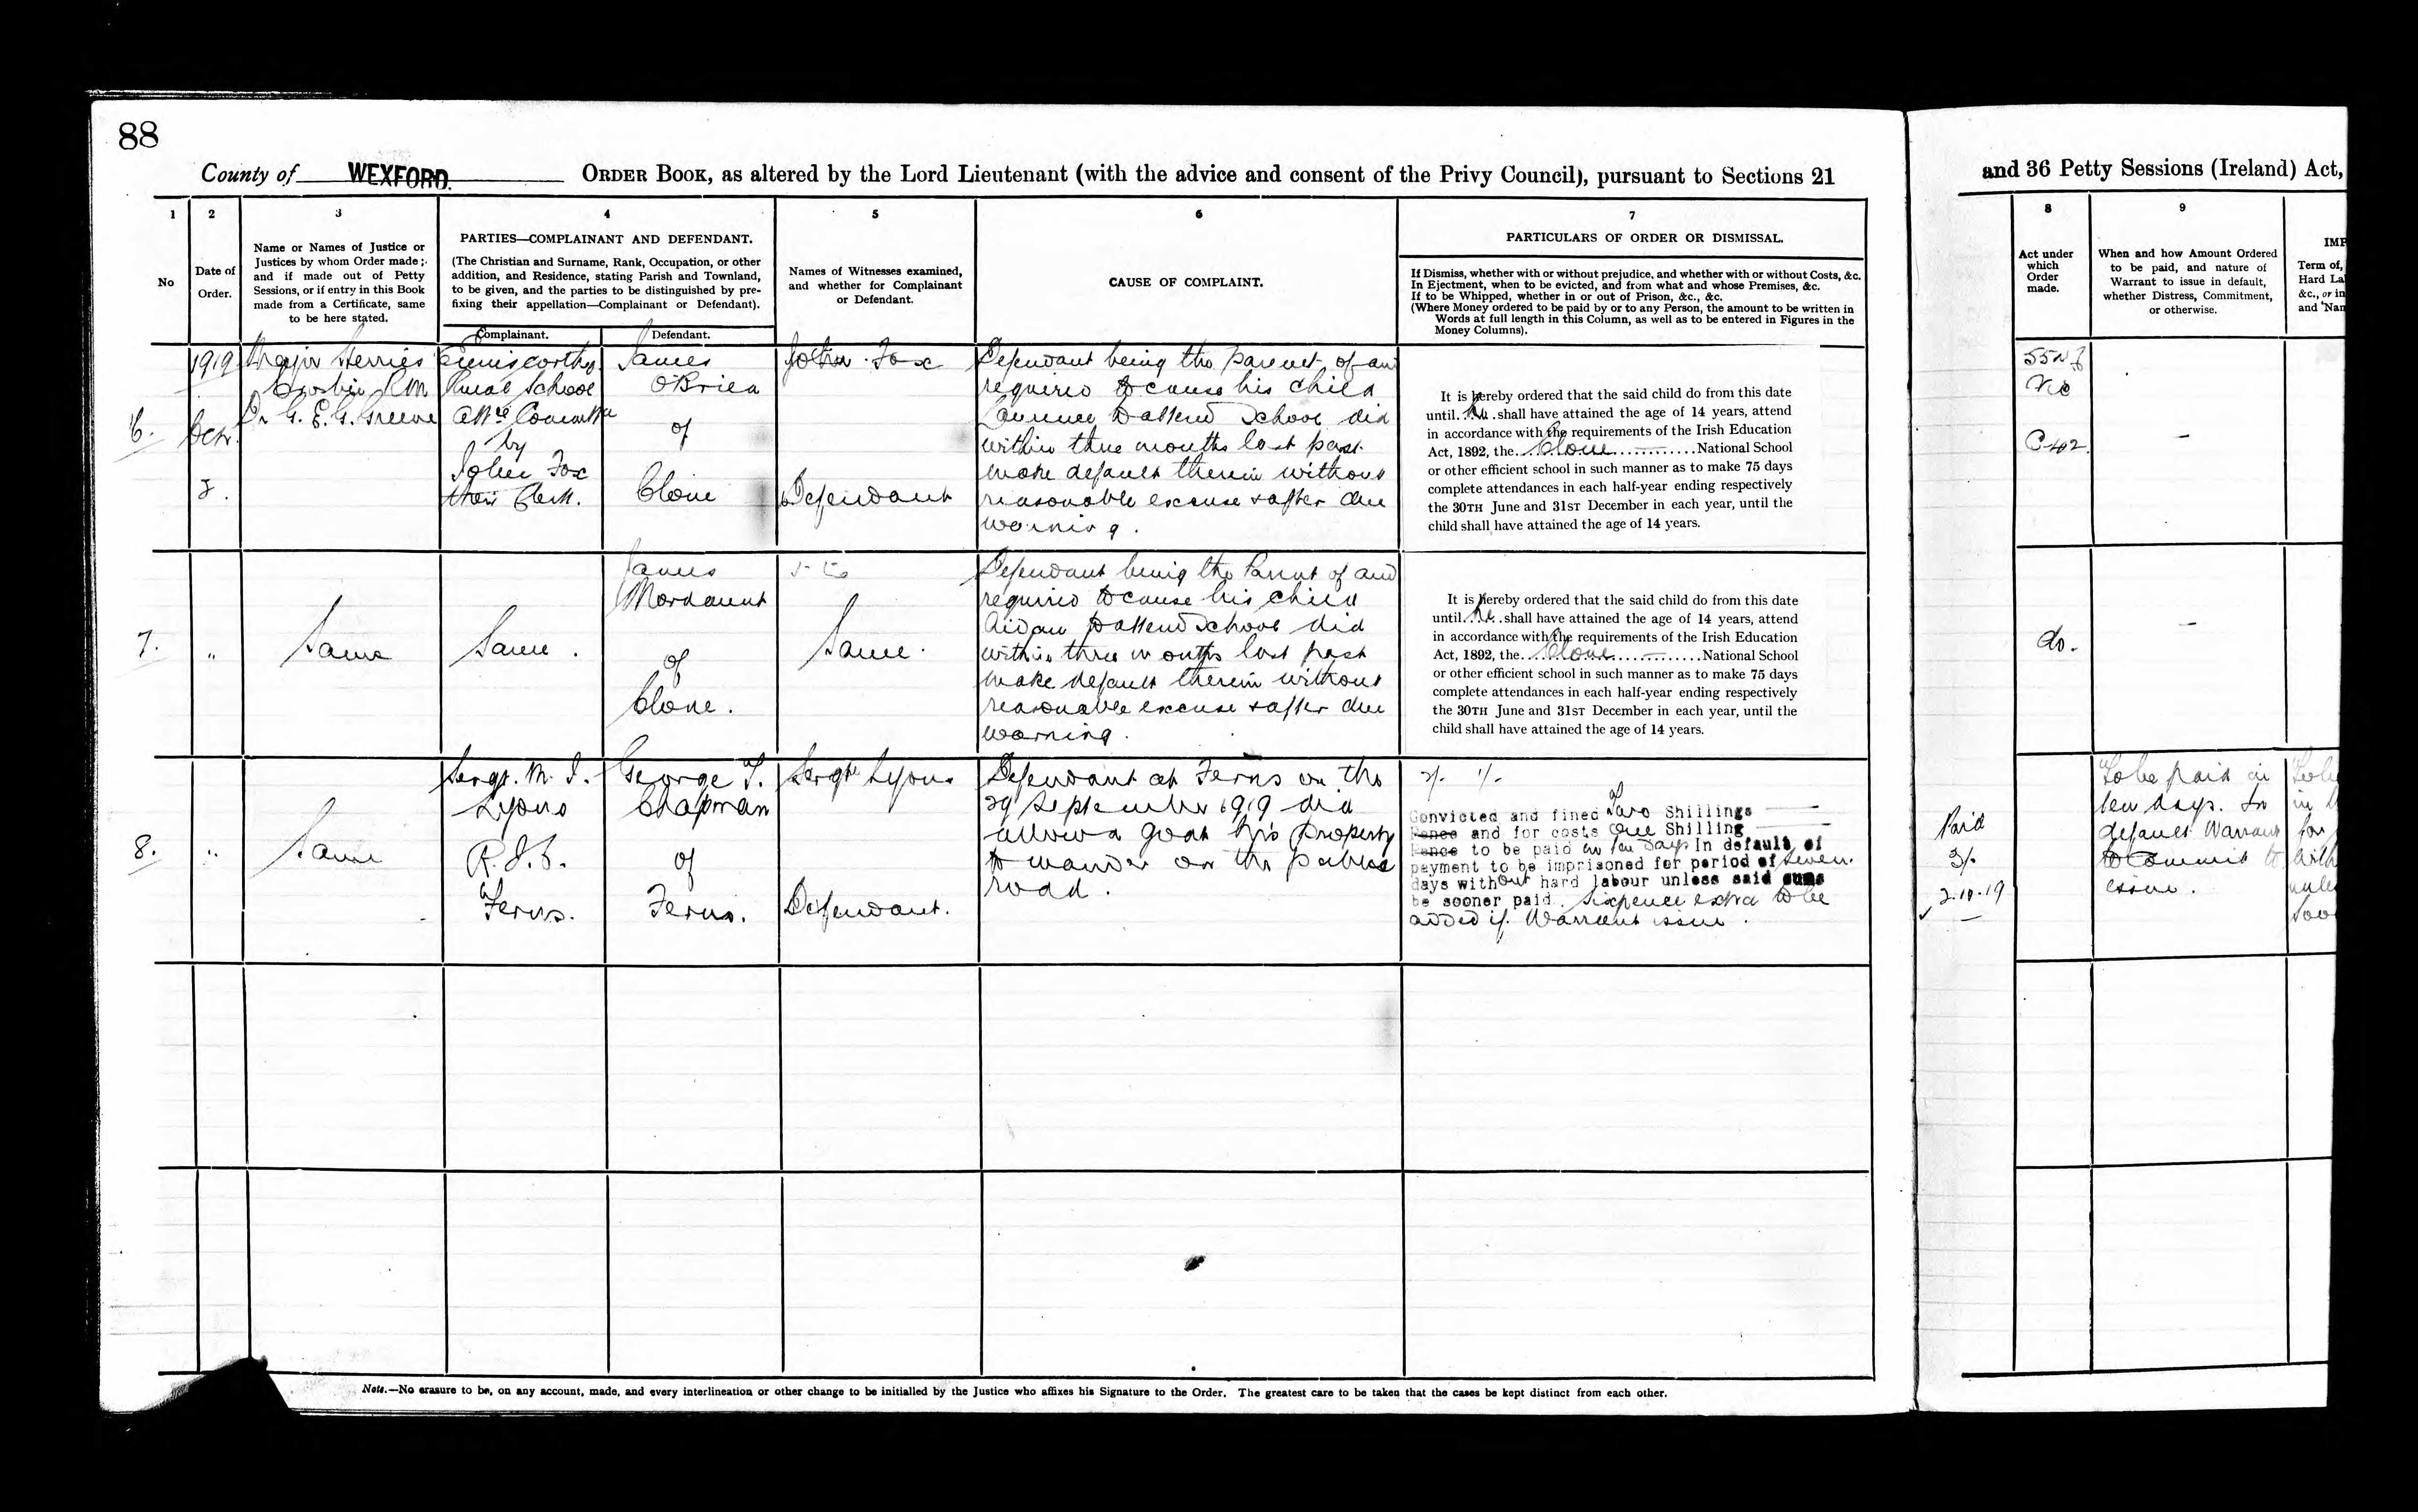 88
County of WEXFORD. ORDER BOOK, as altered by the Lord Lieutenant (with the advice and consent of the Privy Council), pursuant to Sections 21
and 36 Petty Sessions (Ireland) Act,
1
No
2
Date of
Order.
3
Name or Names of Justice or
Justices by whom Order made;
and if made out of Petty
Sessions, or if entry in this Book
made from a Certificate, same
to be here stated.
4
PARTIES—COMPLAINANT AND DEFENDANT.
(The Christian and Surname, Rank, Occupation, or other
addition, and Residence, stating Parish and Townland,
to be given, and the parties to be distinguished by pre-
fixing their appellation—Complainant or Defendant).
Complainant.
Defendant.
5
Names of Witnesses examined,
and whether for Complainant
or Defendant.
6
CAUSE OF COMPLAINT.
7
PARTICULARS OF ORDER OR DISMISSAL.
If Dismiss, whether with or without prejudice, and whether with or without Costs, &c.
In Ejectment, when to be evicted, and from what and whose Premises, &c.
If to be Whipped, whether in or out of Prison, &c., &c.
(Where Money ordered to be paid by or to any Person, the amount to be written in
Words at full length in this Column, as well as to be entered in Figures in the
Money Columns).
8
Act under
which
Order
made.
9
When and how Amount Ordered
to be paid, and nature of
Warrant to issue in default,
whether Distress, Commitment,
or otherwise.
IMP
Term of,
Hard La
&c., or in
and "Nan
6.
1919
Octr.
2.
Major Herries
Crosbie RM
Dr G. E. G. Greene
Enniscorthy
Rural School
Attce Committee
by
John Fox
their Clerk.
James
O'Brien
of
Clone
John Fox
Defendant
Defendant being the parent of and
required to cause his child
Laurence to attend School did
within three months last past
make default therein without
reasonable excuse & after due
warning.
It is hereby ordered that the said child do from this date
until he shall have attained the age of 14 years, attend
in accordance with the requirements of the Irish Education
Act, 1892, the Clone National School
or other efficient school in such manner as to make 75 days
complete attendances in each half-year ending respectively
the 30TH June and 31ST December in each year, until the
child shall have attained the age of 14 years.
Vic
C-42.
–
7.
"
Same
Same.
James
Mordaunt
of
Clone.
Same.
Defendant being the Parent of and
required to cause his child
Aidan to attend School did
within three months last past
make default therein without
reasonable excuse & after due
warning.
It is hereby ordered that the said child do from this date
until he shall have attained the age of 14 years, attend
in accordance with the requirements of the Irish Education
Act, 1892, the Clone National School
or other efficient school in such manner as to make 75 days
complete attendances in each half-year ending respectively
the 30TH June and 31ST December in each year, until the
child shall have attained the age of 14 years.
do.
–
8.
"
Same
Sergt. M. J.
Lyons
R.I.C.
Ferns.
George T.
Chapman
of
Ferns.
Sergt Lyons
Defendant.
Defendant at Ferns on the
29 September 1919 did
allow a goat his property
to wander on the public
road.
2/- 1/-
Convicted and fined Two Shillings
Pence and for costs One Shilling
Pence to be paid in ten days In default of
payment to be imprisoned for period of Seven
days without hard labour unless said sums
be sooner paid. Sixpence extra to be
added if Warrant issue.
Paid
3/-
2.10.19
To be paid in
ten days. In
default Warrant
to Commit to
issue.
Note.—No erasure to be, on any account, made, and every interlineation or other change to be initialled by the Justice who affixes his Signature to the Order. The greatest care to be taken that the cases be kept distinct from each other.